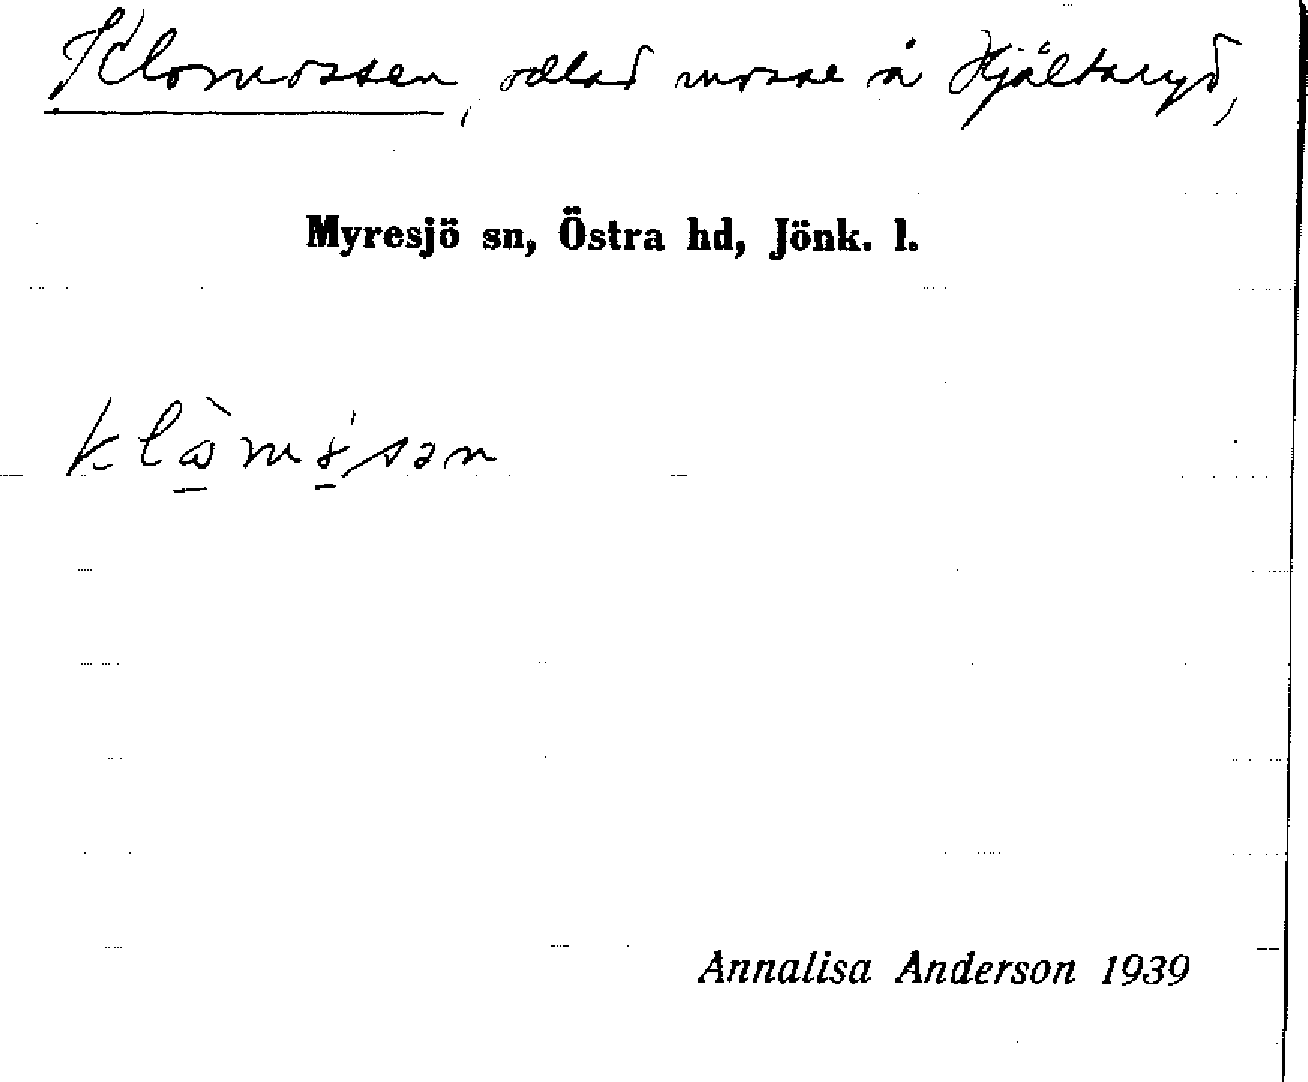 Klomossen, odlad mosse å Hjältaryd,
Myresjö sn, Östra hd, Jönk. l.
Annalisa Anderson 1939